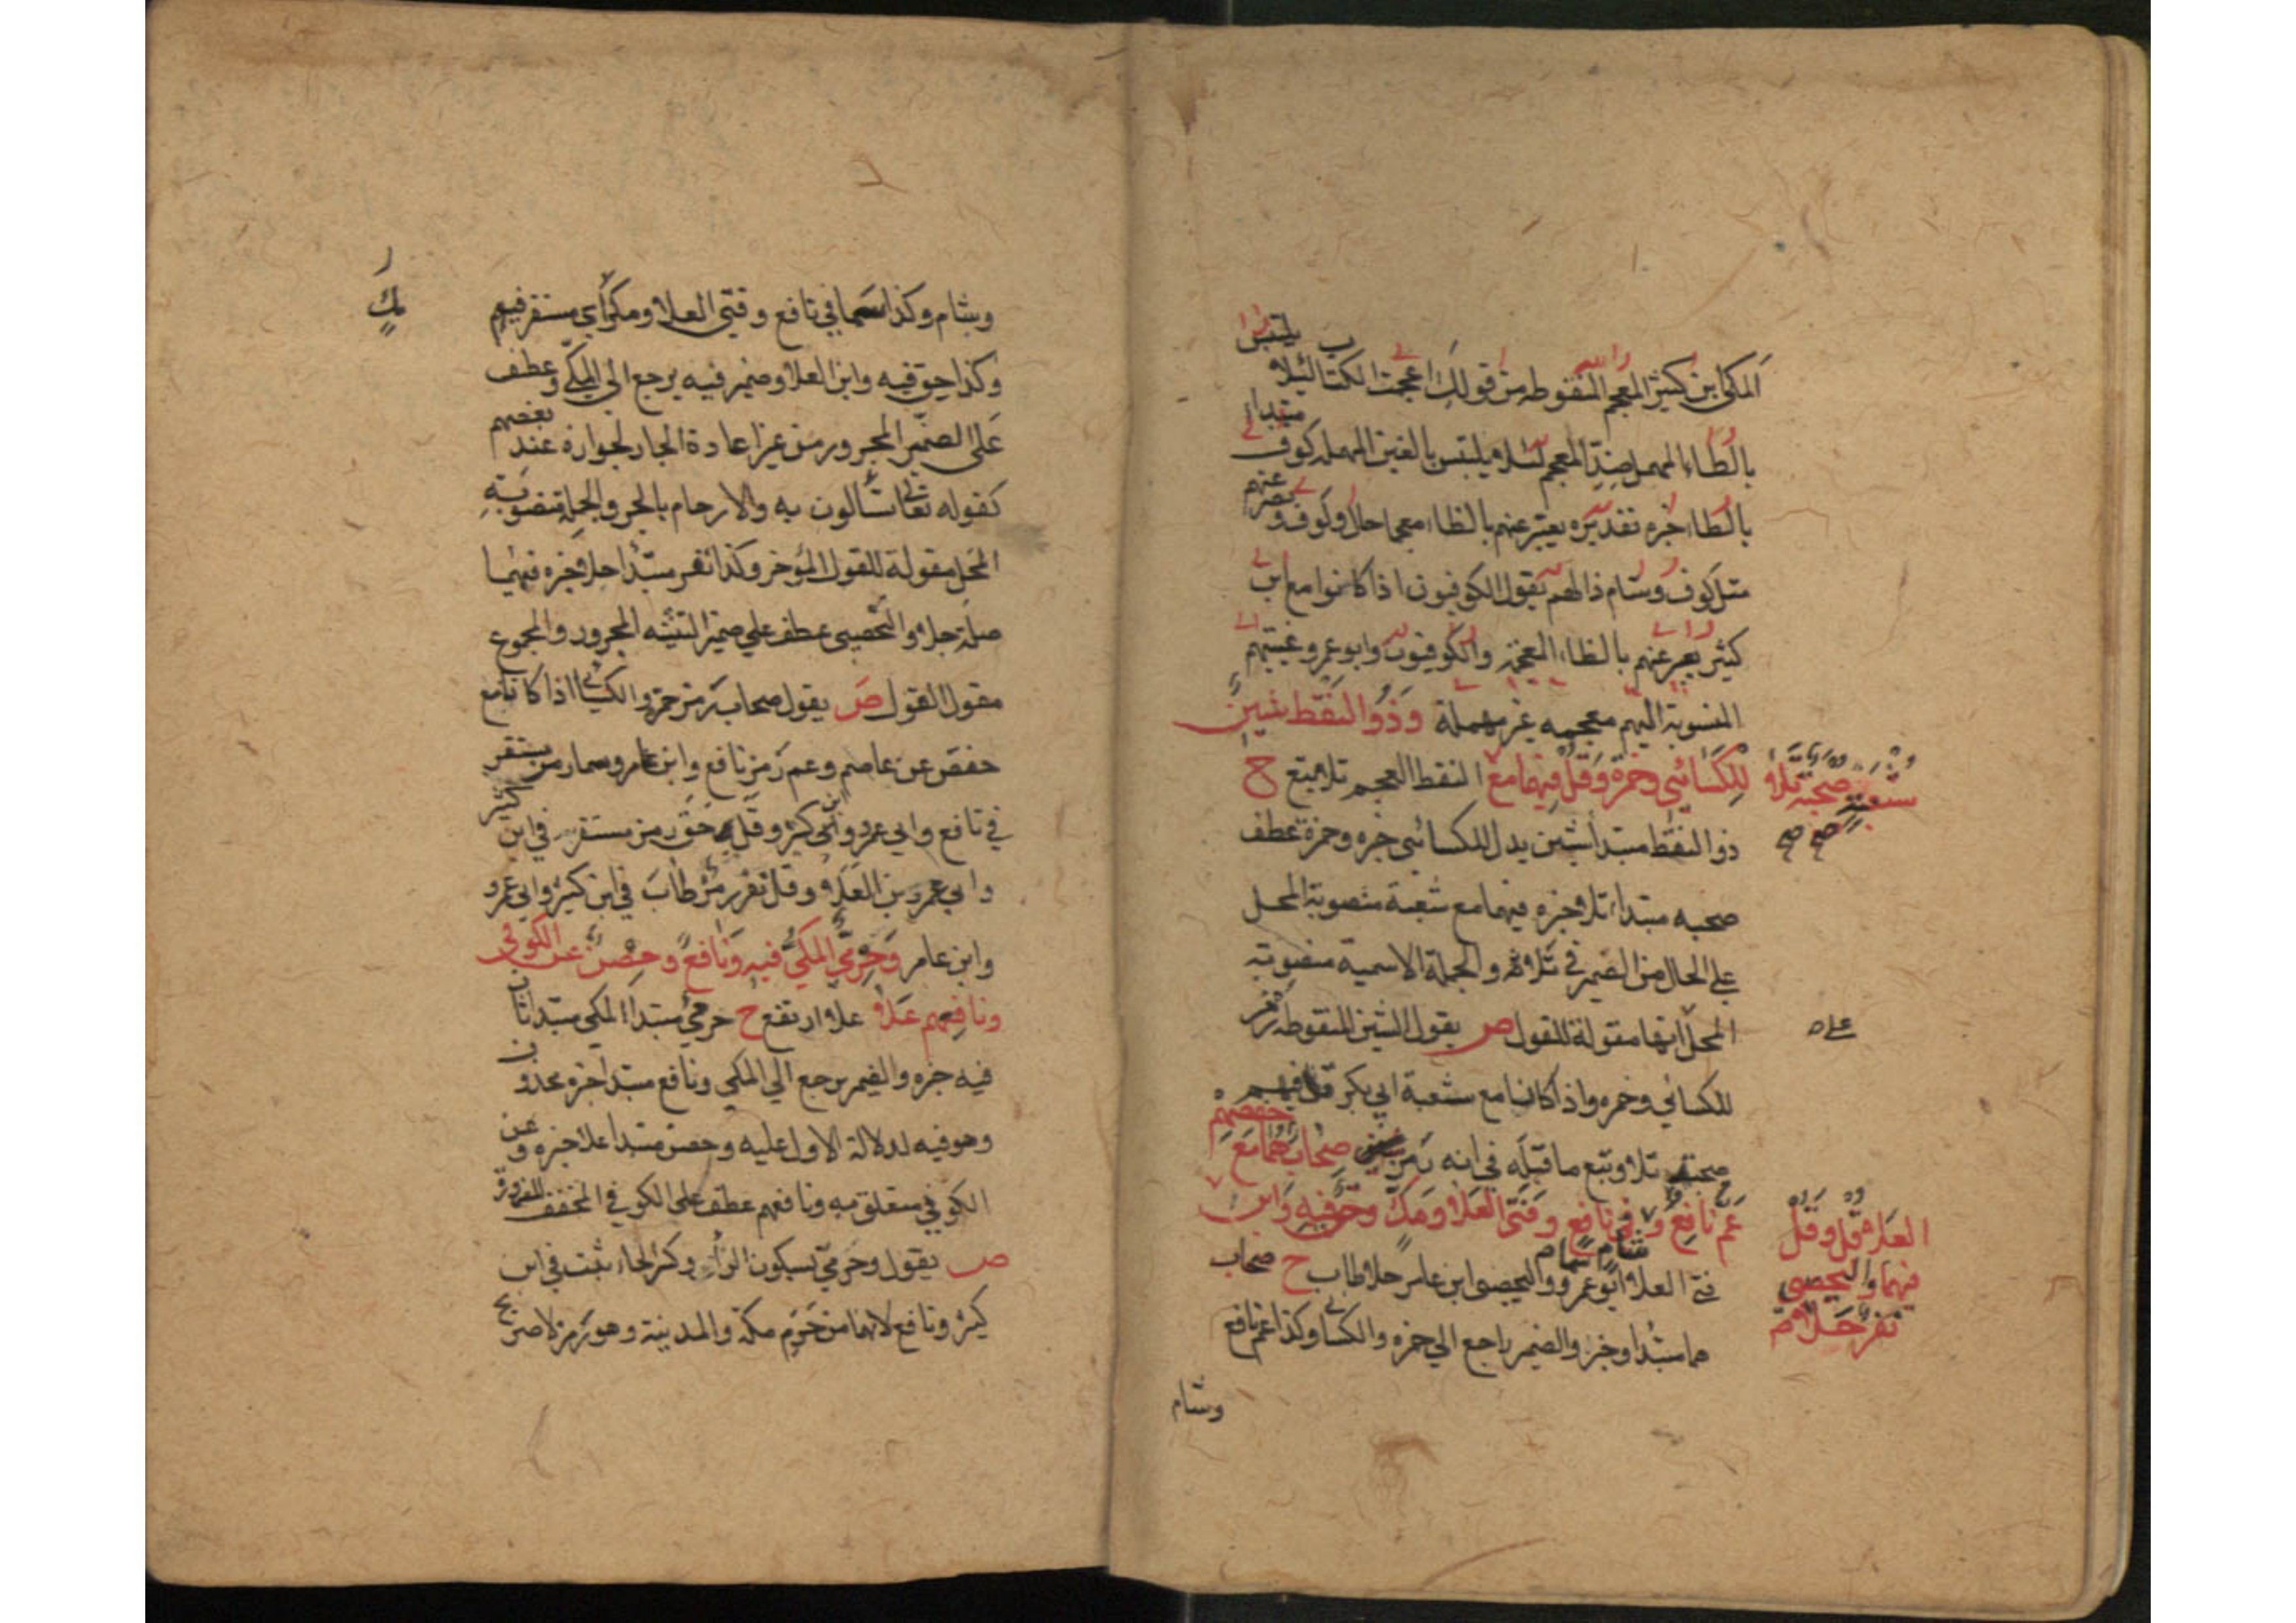 المكي ابن كثير المعجم المنقوطه من قولك اعجمت الكتاب لئلا يلتبس
بالطاء المهمل ضد المعجم لئلا يلتبس بالغين المهمله كوف مبتدا
بالظاء خبره تقديره يعبر عنهم بالظاء معجما حال وكوف وبصر
مثل كوف وشام ذالهم يقول الكوفيون اذا كانوا مع ابن
كثير يعبر عنهم بالظاء المعجمة والكوفيون وابو عمرو غينهم
المنسوبة اليهم معجمه غير مهملة وذو النقط شين
للكسائي وحمزة وقل فيهما مع النقط العجم تلا تبع ح
شعبة صحبة تلا
صح صح
ذو النقط مبتدا شين بدل للكسائي خبره وحمزة عطف
صحبه مبتدا تلا خبره فيهما مع شعبة منصوبة المحل
علي الحال من الضمير في تلا والجملة الاسمية منصوبة
المحل انها مقولة للقول ص يقول الشين المنقوطه رمز
للكسائي وحمزه واذا كانا مع شعبة ابي بكر قل فيهم
صحبة تلا وتبع ما قبله في انه رمز صحاب هما مع حفصهم
عم نافع وشام سما في نافع وفتى العلا ومك وحق فيه وابن
العلاء قل وقل
فيهما واليحصبي
نفر حلا
فتى العلا ابو عمرو واليحصبي ابن عامر حلا طاب ح صحاب
هما مبتدا وخبر والضمير راجع الي حمزه والكسا وكذا عم نافع
وشام
وشام وكذا سما في نافع وفتى العلا ومك اي مستقر فيهم
وكذا حق فيه وابن العلا وضمير فيه يرجع الي المكي وعطف
على الضمير المجرور من غير اعادة الجار لجوازه عند بعضهم
كقوله تعالى تسألون به والارحام بالجر والجملة منصوبة
المحل مقولة للقول المؤخر وكذا نفر مبتدا حلا خبره فيهما
صلة حلا واليحصبي عطف علي ضمير التثنيه المجرور والمجموع
مقول القول ص يقول صحاب رمز حمزة والكسائي اذا كانا مع
حفص عن عاصم وعم رمز نافع وابن عامر وسما رمز مستقر
في نافع وابي عمرو وابن كثير وقل حق رمز مستقر في ابن كثير
وابي عمرو بن العلاء وقل نفر رمز طاب في ابن كثير وابي عمرو
وابن عامر وحرمي المكي فيه ونافع وحصن عن الكوفي
ونافعهم علا علا ارتفع ح حرمي مبتدا المكي مبتدا ثان
فيه خبره والضمير يرجع الي المكي ونافع مبتدا خبره محذوف
وهو فيه لدلالة الاول عليه وحصن مبتدا علا خبره وعن
الكوفي متعلق به ونافعهم عطف على الكوفي المخفف للضرورة
ص يقول وحرمي بسكون الراء وكسر الحاء ثبت في ابن
كثير ونافع لانهما من حرم مكة والمدينة وهو رمز لا صريح